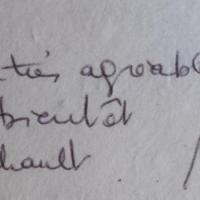 très agréabl
bientôt
hault